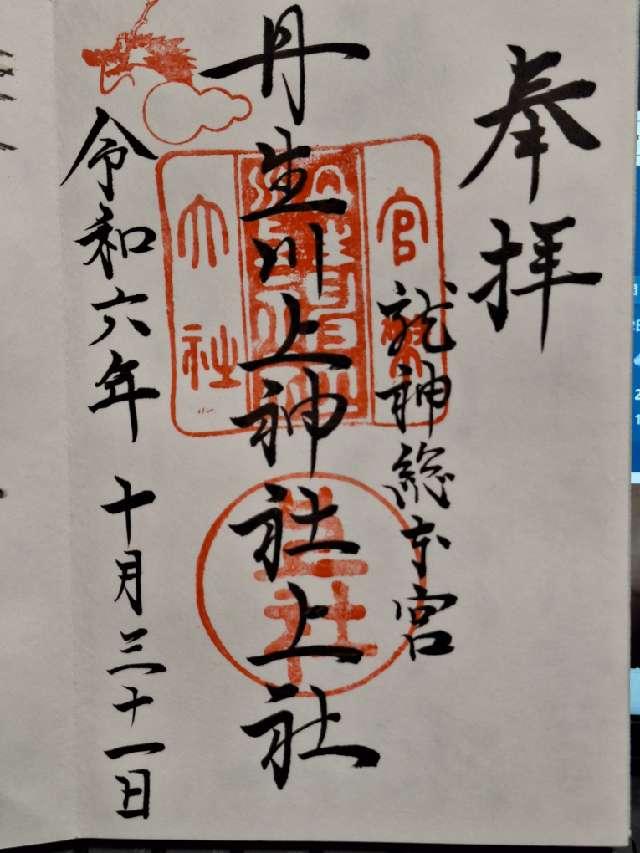 奉拝
龍神総本宮
丹生川上神社上社
令和六年 十月三十一日
官幣
大社
上社